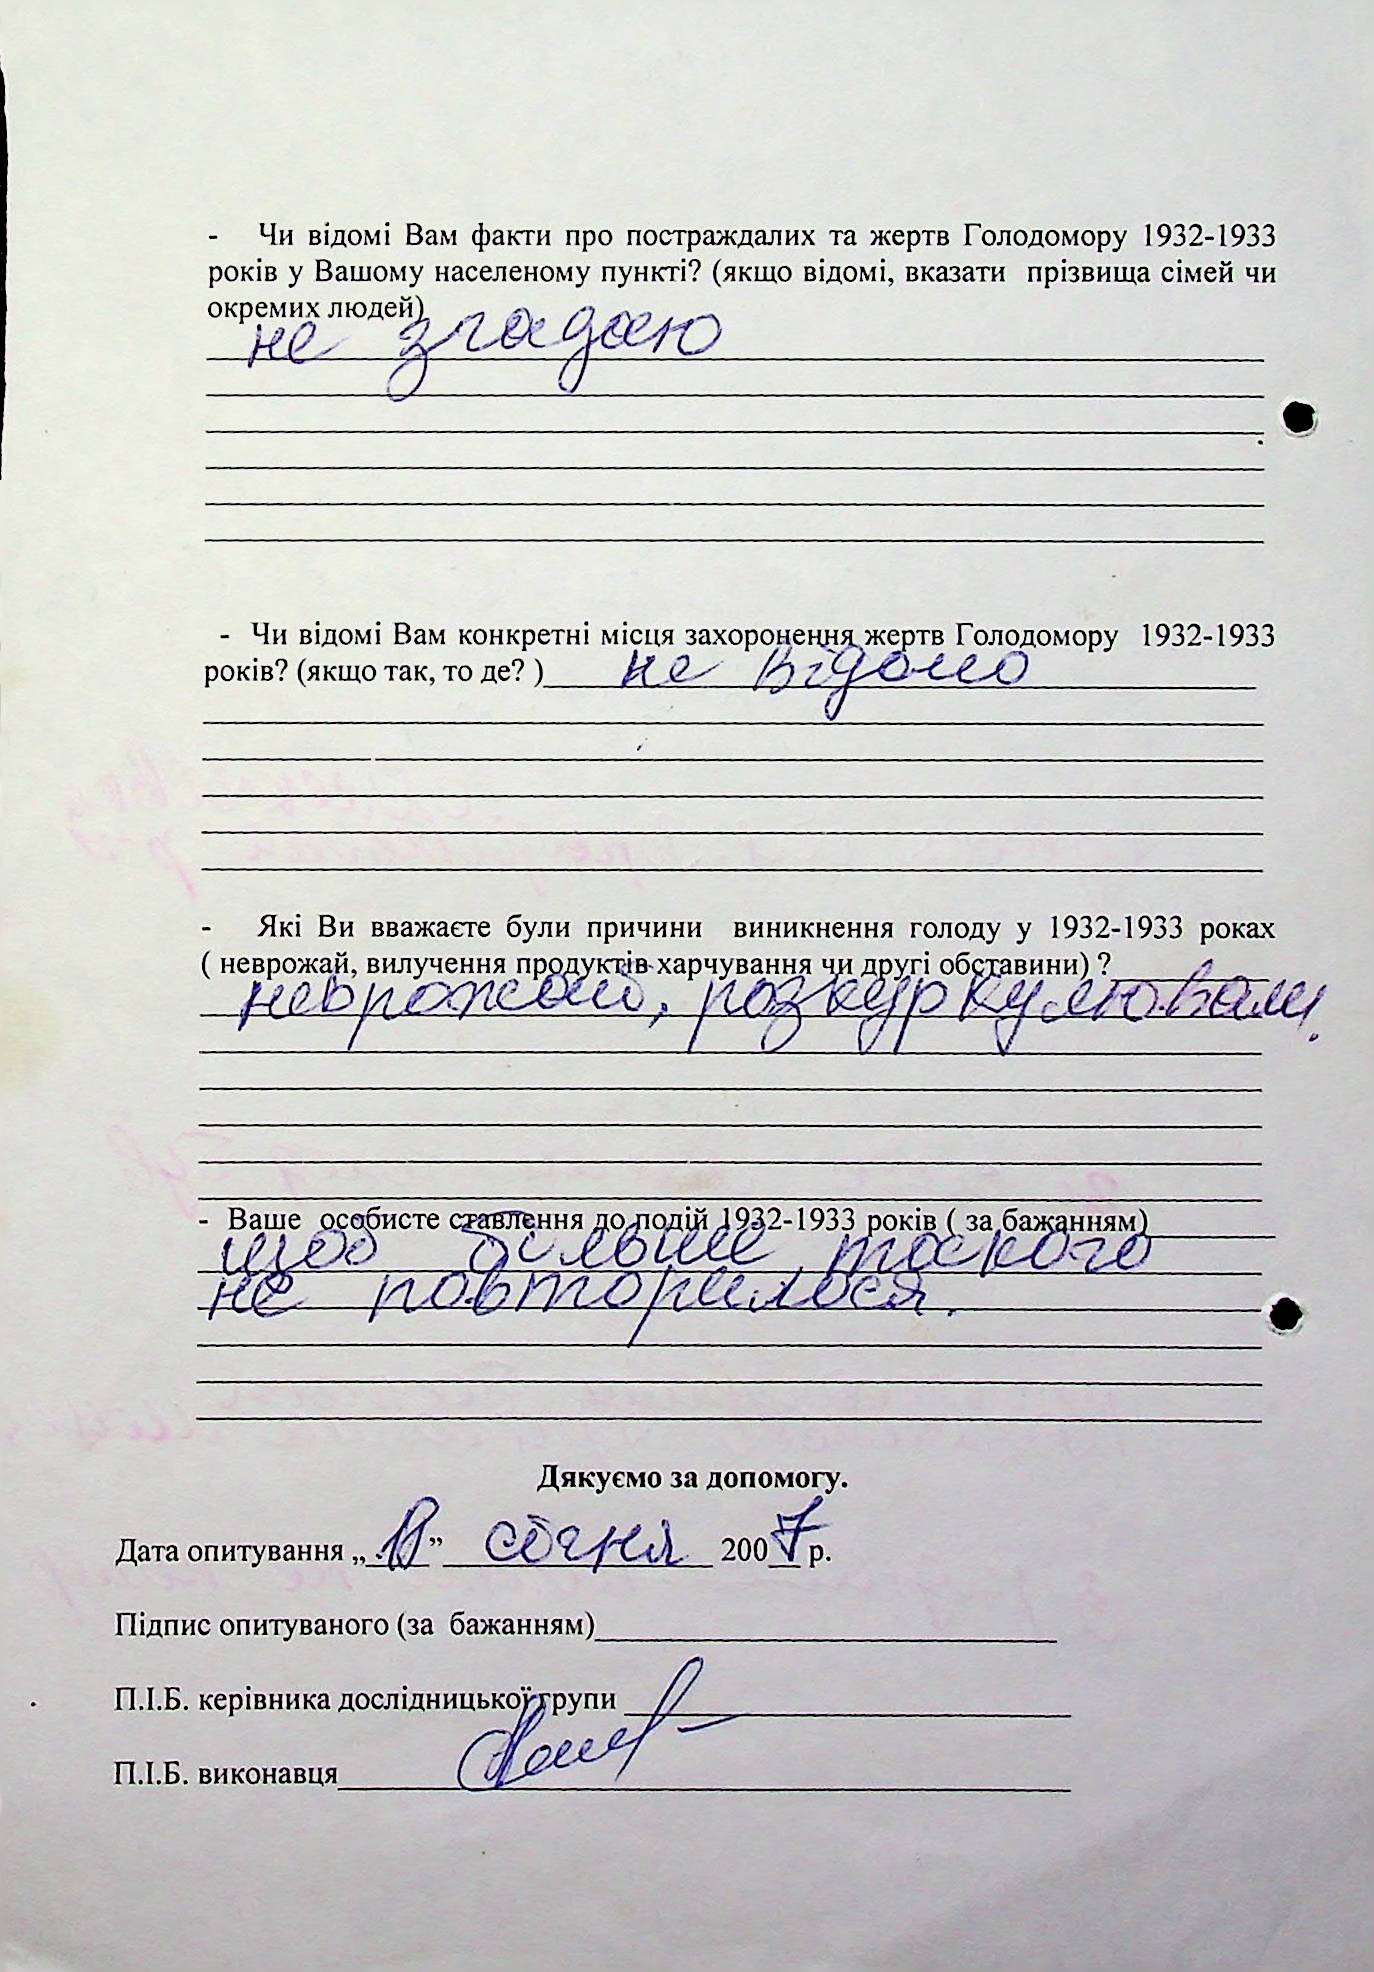 - Чи відомі Вам факти про постраждалих та жертв Голодомору 1932-1933
років у Вашому населеному пункті? (якщо відомі, вказати прізвища сімей чи
окремих людей)
не згадаю
- Чи відомі Вам конкретні місця захоронення жертв Голодомору 1932-1933
років? (якщо так, то де? ) не відомо
- Які Ви вважаєте були причини виникнення голоду у 1932-1933 роках
( неврожай, вилучення продуктів харчування чи другі обставини) ?
неврожай, розкуркулювали.
- Ваше особисте ставлення до подій 1932-1933 років ( за бажанням)
щоб більше такого
не повторилося.
Дякуємо за допомогу.
Дата опитування „ ” січня 2007 р.
Підпис опитуваного (за бажанням)
П.І.Б. керівника дослідницької групи
П.І.Б. виконавця